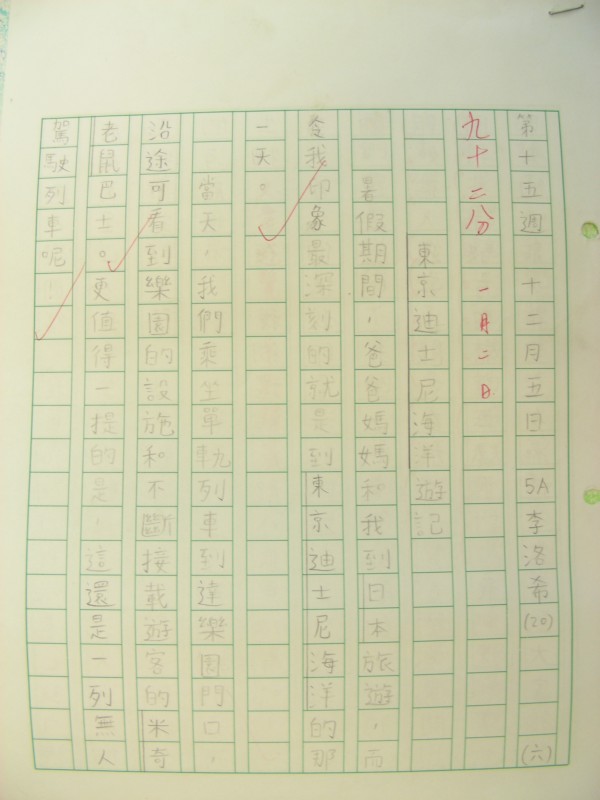 第十五週 十二月五日 5A李洛希(20) (六)
九十二分 一月二日
東京迪士尼海洋遊記
暑假期間，爸爸媽媽和我到日本旅遊，而
令我印象最深刻的就是到東京迪士尼海洋的那
一天。
當天，我們乘坐單軌列車到達樂園門口，
沿途可看到樂園的設施和不斷接載遊客的米奇
老鼠巴士。更值得一提的是，這還是一列無人
駕駛列車呢！